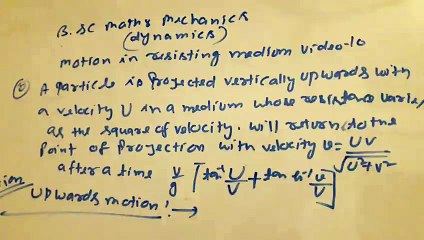 B.SC maths mechanics
(dynamics)
motion in resisting medium video-10
A particle is projected vertically upwards with
a velocity U in a medium whose resistance varies
as the square of velocity. will return to the
point of projection with velocity v = UV/√U²+V²
after a time V/g [tan⁻¹ U/V + tan h⁻¹ v/V]
UPwards motion! →